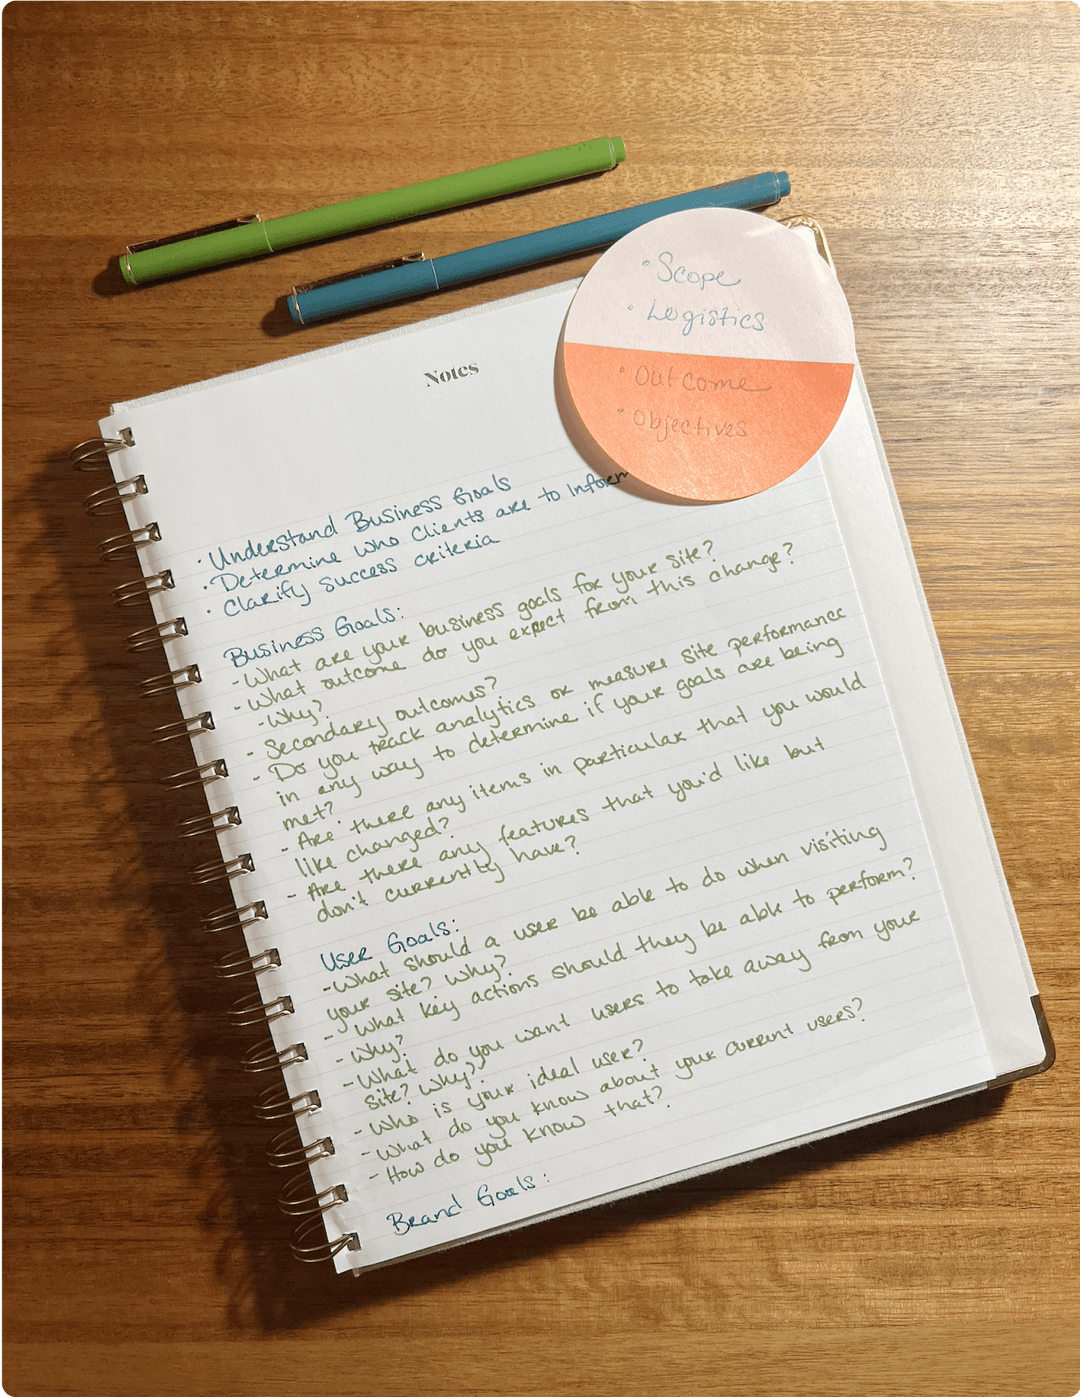 • Scope
• Logistics
• Outcome
• Objectives
Notes
• Understand Business Goals
• Determine who clients are to inform
• Clarify success criteria
Business Goals:
- What are your business goals for your site?
- What outcome do you expect from this change?
- Why?
- Secondary outcomes?
- Do you track analytics or measure site performance
in any way to determine if your goals are being
met?
- Are there any items in particular that you would
like changed?
- Are there any features that you'd like but
don't currently have?
User Goals:
- What should a user be able to do when visiting
your site? Why?
- What key actions should they be able to perform?
- Why?
- What do you want users to take away from your
site? Why?
- Who is your ideal user?
- What do you know about your current users?
- How do you know that?
Brand Goals: